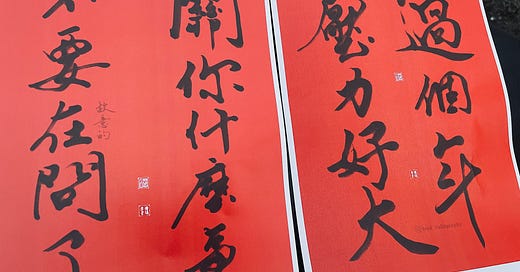 過個年
壓力好大
關你什麼事
不要在問了
故意的